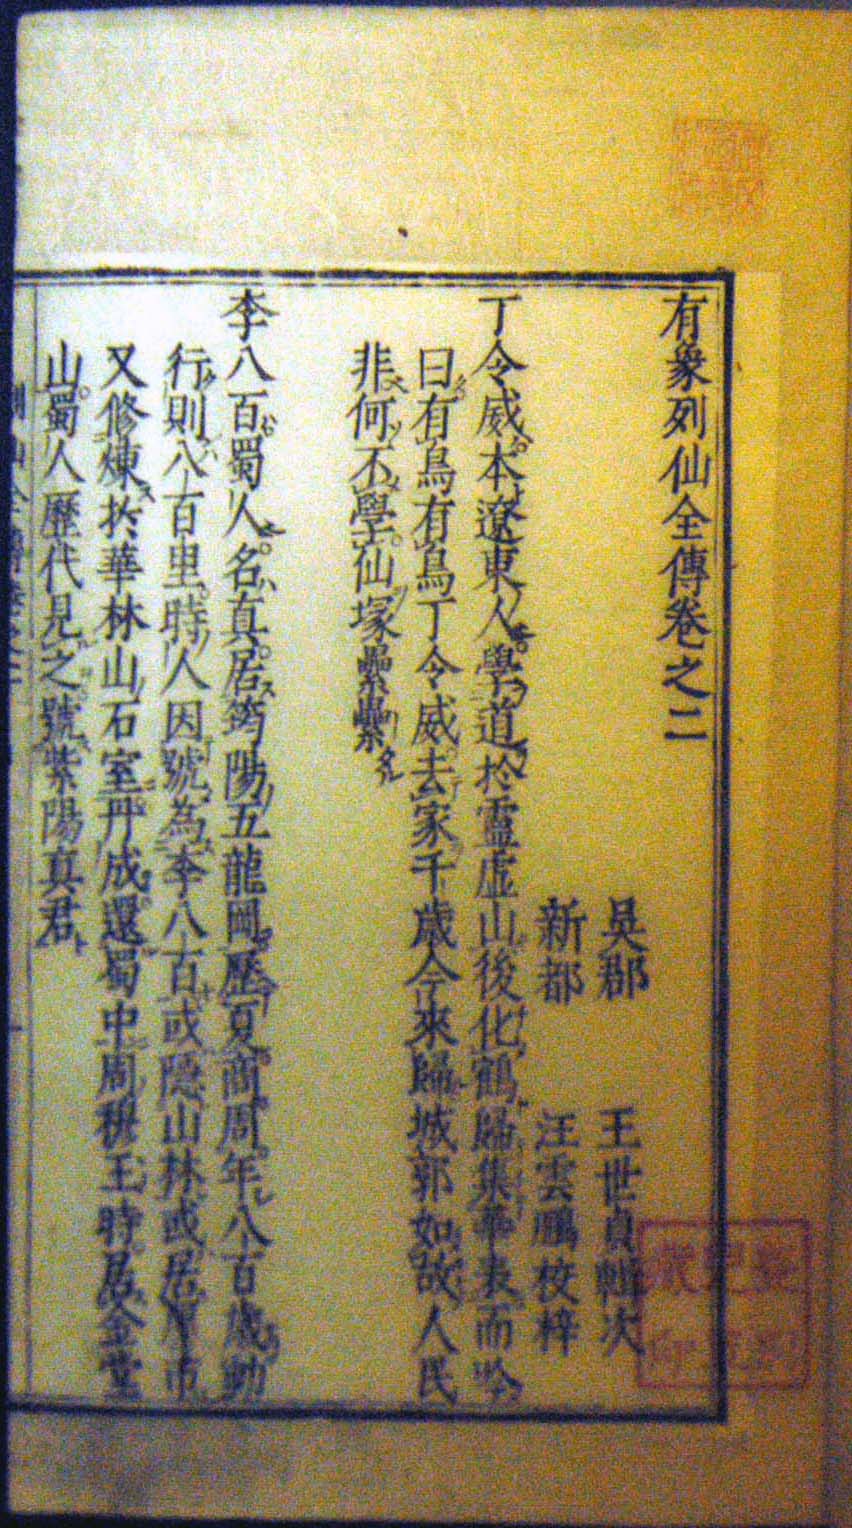 有象列仙全傳卷之二
吳郡 王世貞輯次
新都 汪雲鵬校梓
丁令威本遼東人學道於靈虛山後化鶴歸集華表而吟
曰有鳥有鳥丁令威去家千歲今來歸城郭如故人民
非何不學仙塚纍纍
李八百蜀人名真居筠陽五龍岡歷夏商周年八百歲動
行則八百里時人因號為李八百或隱山林或居廛市
又修煉於華林山石室丹成還蜀中周穆王時居金堂
山蜀人歷代見之號紫陽真君